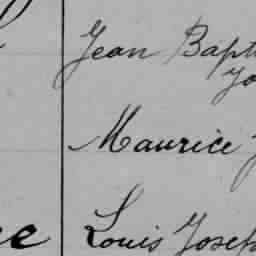 Jean Bapt
Jo
Maurice J
Louis Joseph
ce